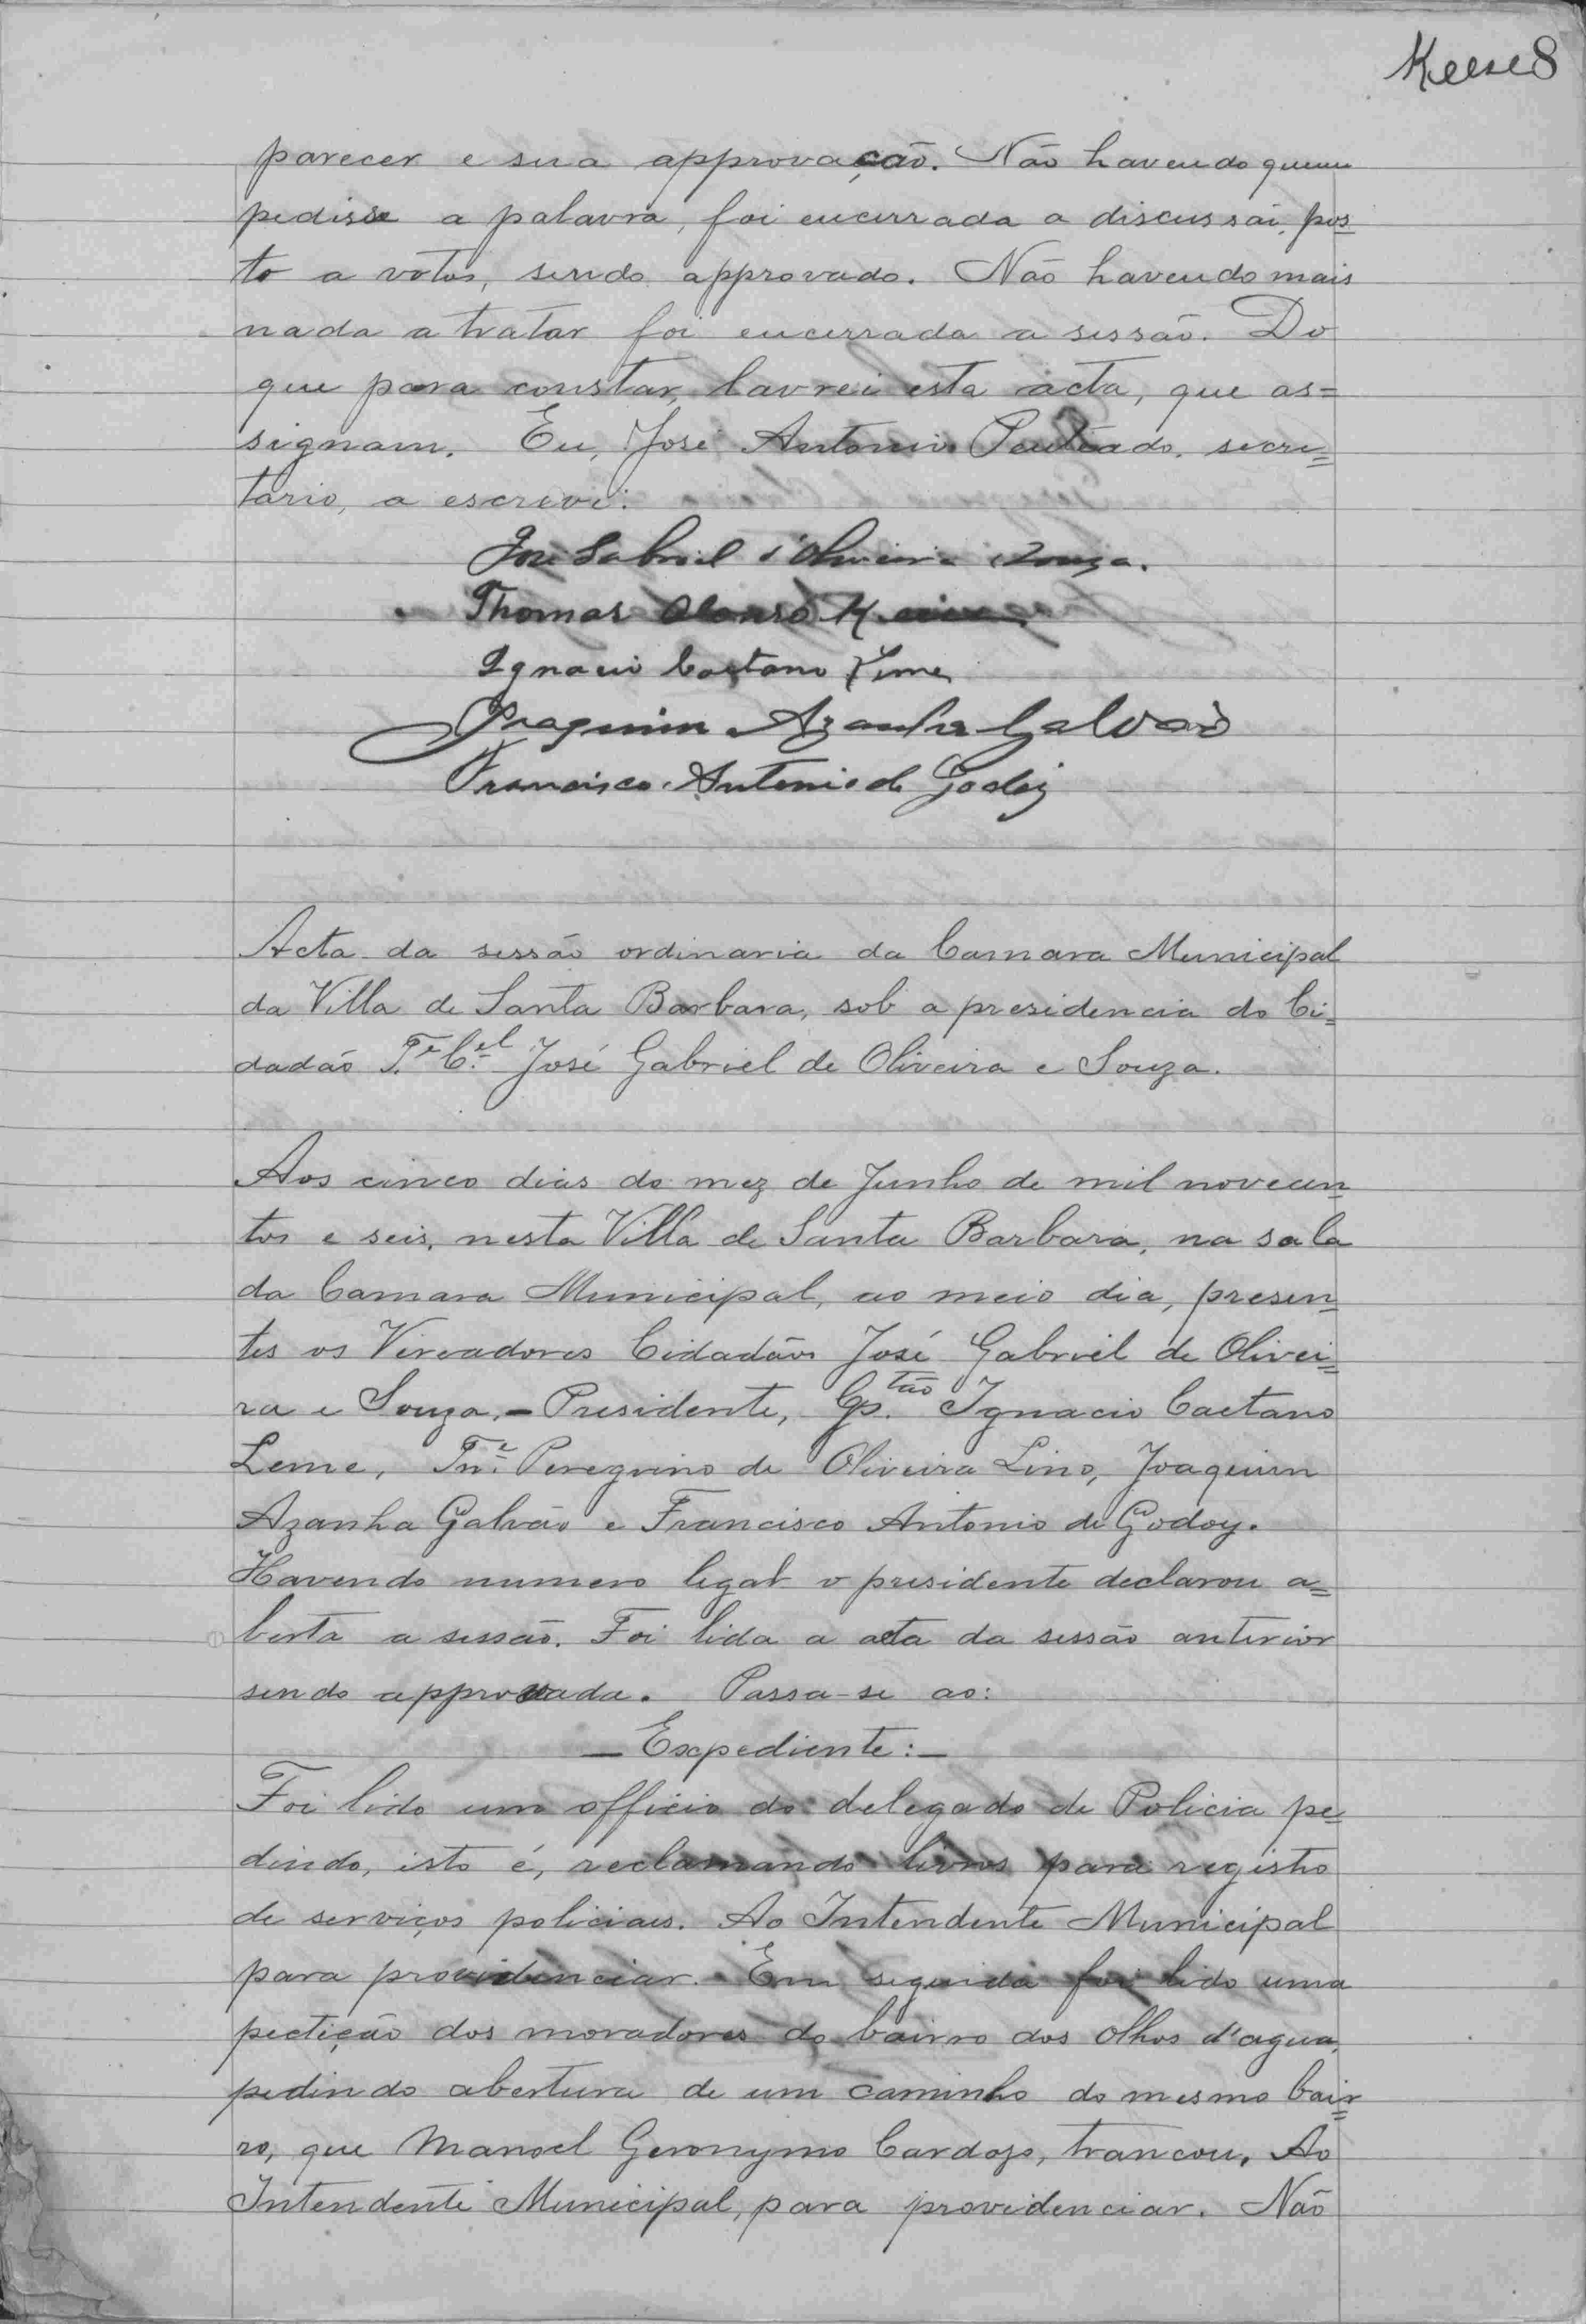 Keese 8
parecer e sua approvação. Não havendo quem
pedisse a palavra, foi encerrada a discussão, pos
to a votos, sendo approvado. Não havendo mais
nada a tratar foi encerrada a sessão. Do
que para constar, lavrei esta acta, que as=
signam. Eu, José Antonio Penteado, secre=
tario, a escrevi.
José Gabriel d'Oliveira e Souza.
Thomas Alonso Keese
Ignacio Caetano Leme
Joaquim Azanha Galvão
Francisco Antonio de Godoy
Acta da sessão ordinaria da Camara Municipal
da Villa de Santa Barbara, sob a presidencia do Ci=
dadão Te. Cel. José Gabriel de Oliveira e Souza.
Aos cinco dias do mez de Junho de mil novecen
tos e seis, nesta Villa de Santa Barbara, na sala
da Camara Municipal, ao meio dia, presen=
tes os Vereadores Cidadãos José Gabriel de Olivei=
ra e Souza, - Presidente, Cp.tão Ignacio Caetano
Leme, Tne. Peregrino de Oliveira Lino, Joaquim
Azanha Galvão e Francisco Antonio de Godoy.
Havendo numero legal o presidente declarou a=
berta a sessão. Foi lida a acta da sessão anterior
sendo approvada. Passa-se ao:
- Expediente: -
Foi lido um officio do delegado de Policia pe=
dindo, isto é, reclamando livros para registro
de serviços policiaes. Ao Intendente Municipal
para providenciar. Em seguida foi lido uma
pectição dos moradores do bairro dos olhos d'agua,
pedindo abertura de um caminho do mesmo bair=
ro, que Manoel Geronymo Cardozo, trancou. Ao
Intendente Municipal, para providenciar. Não